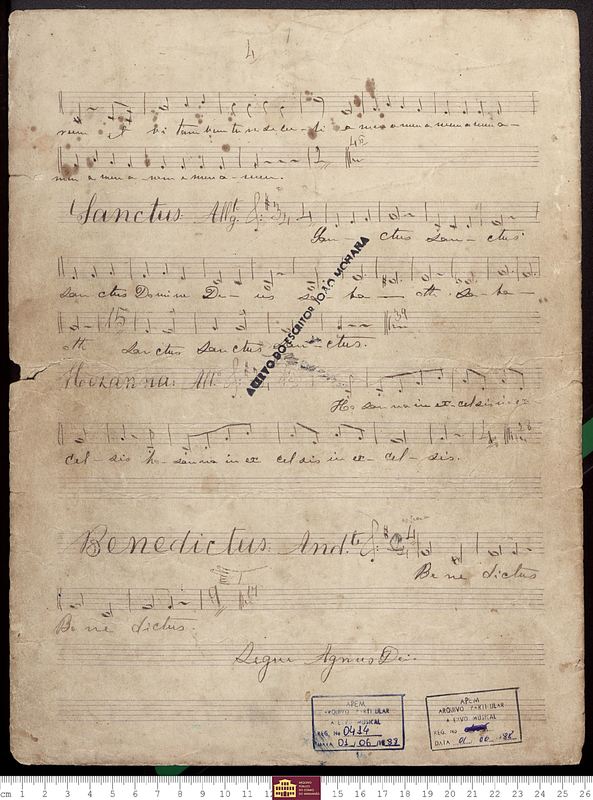 4
rum et vi tam ven tu ri se cu - li a men a men a men a men a -
men a men a - men a men a - men.
Sanctus. All.º 3/4 4
San - ctus San - ctus.
San ctus Domine De - us sa - ba - oth. Sa - ba -
15 39
oth Sanctus Sanctus San - ctus.
ACERVO DO ESCRITOR JOÃO MOHANA
Hozanna. All.º
Ho san na in ex - cel sis in ex -
cel - sis ho - sanna in ex cel sis in ex - cel - sis.
Benedictus. And.te C 4
Be ne dictus
Be ne dictus.
Segue Agnus Dei.
APEM
ARQUIVO PARTICULAR
ACERVO MUSICAL
REG. No 0414
DATA 01 / 06 / 1988
APEM
ARQUIVO PARTICULAR
ACERVO MUSICAL
REG. No
DATA 01 06 88
cm 1 2 3 4 5 6 7 8 9 10 11 15 16 17 18 19 20 21 22 23 24 25 26
ARQUIVO PÚBLICO DO ESTADO DO MARANHÃO